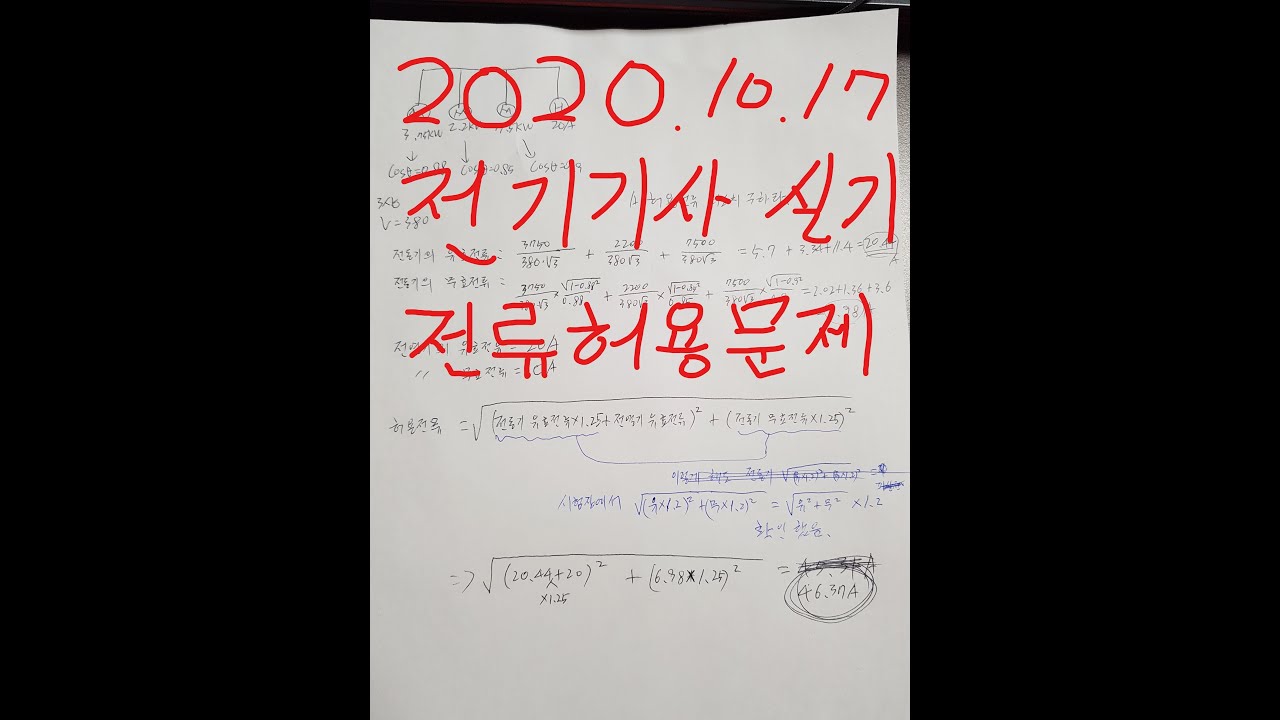 2020.10.17
전기기사 실기
전류허용문제
3.75kW 2.2kW 7.5kW 20A
cosθ=0.88 cosθ=0.85 cosθ=0.9
3상
V=380
전동기의 유효전류 : 3750/380·√3 + 2200/380√3 + 7500/380√3 = 5.7 + 3.34 + 11.4 = 20.44 A
전동기의 무효전류 : 3750/380·√3 × √1-0.88²/0.88 + 2200/380√3 × √1-0.85²/0.85 + 7500/380√3 × √1-0.9² = 2.02+1.36+3.6
전열기의 유효전류 = 20A
〃 무효전류 = 0A
허용전류 = √(전동기 유효전류×1.25+전열기 유효전류)² + (전동기 무효전류×1.25)²
시험장에서 √(유×1.2)² + (무×1.2)² = √유²+무² ×1.2
확인했음.
=> √(20.44+20)² + (6.98×1.25)² =
×1.25
46.37A